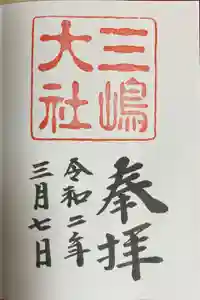 三嶋
大社
奉拝
令和二年
三月七日